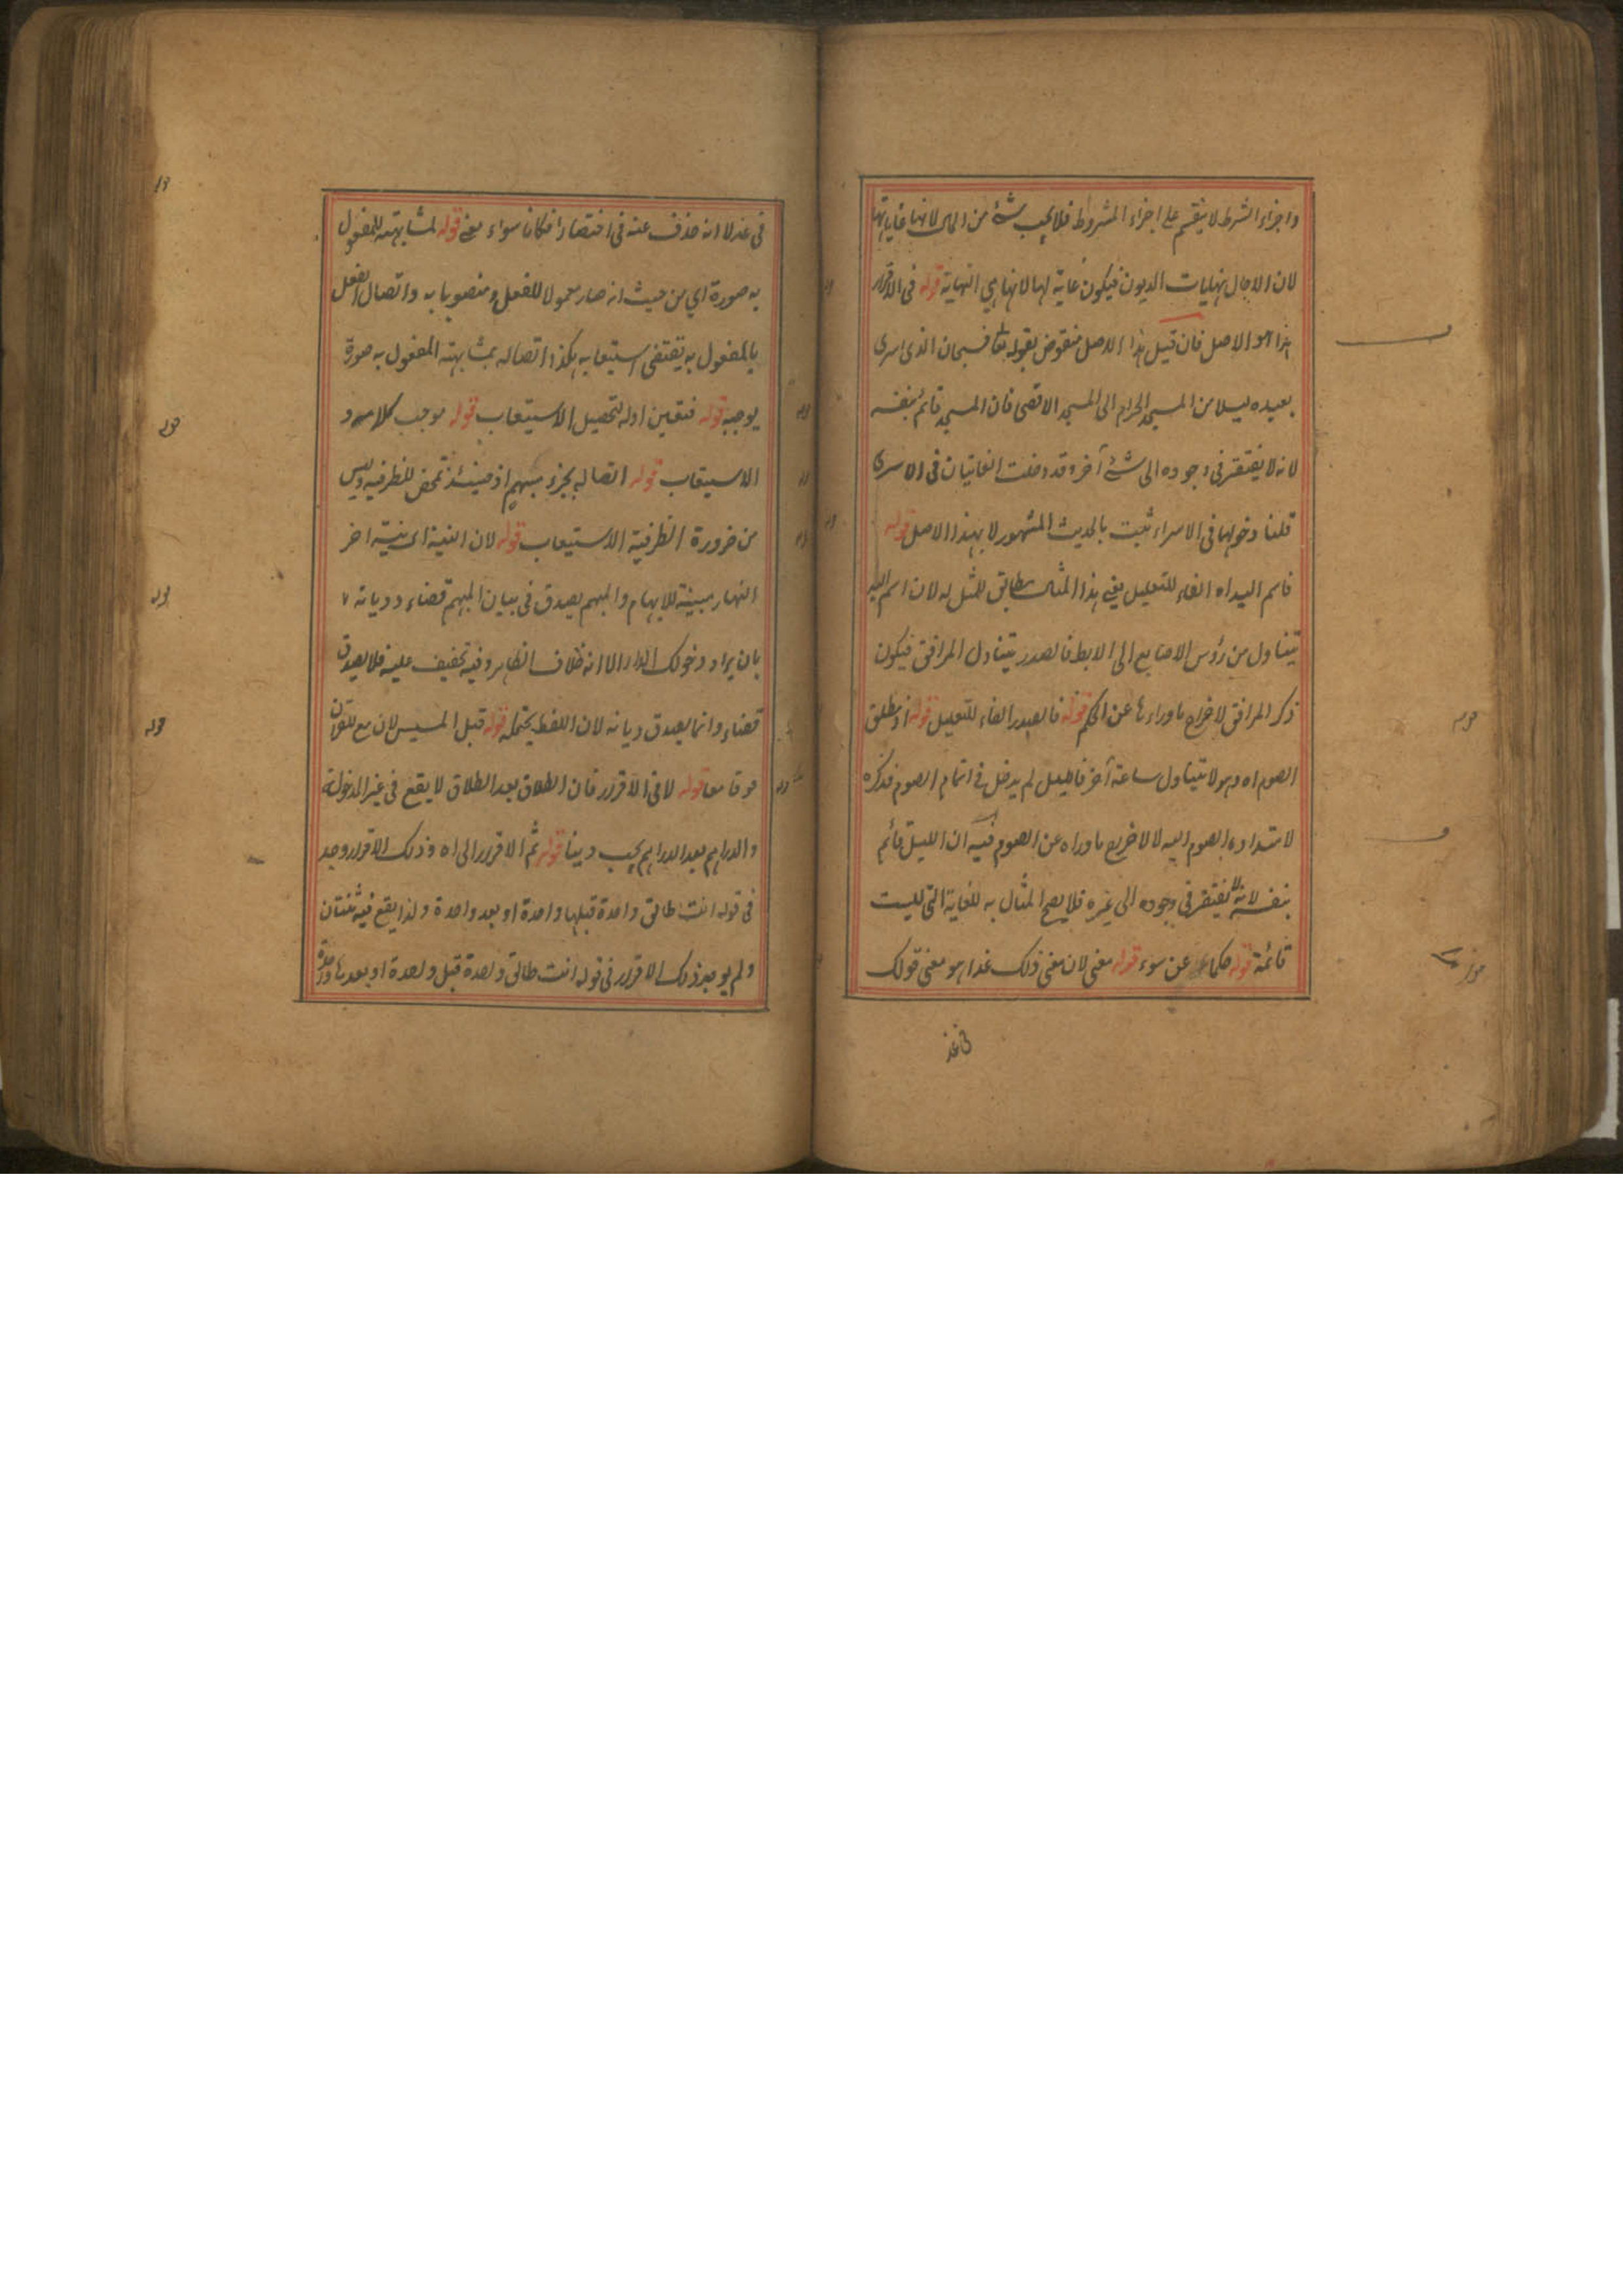 واجزاء الشرط لا ينقسم على اجزاء المشروط فلا يجب شئ من المال لانها غاياتها
لان الاجال نهايات الديون فيكون غاية لها لانها هي النهاية قوله في الاقرار
هذا هو الاصل فان قيل هذا الاصل منقوض بقوله تعا فسبحان الذى اسرى
بعبده ليلا من المسجد الحرام الى المسجد الاقصى فان المسجد قائم بنفسه
لانه لا يفتقر في وجوده الى شئ آخر وقد دخلت الغايتان في الاسرى
قلنا دخولها في الاسراء ثبت بالحديث المشهور لا بهذا الاصل قوله
فاسم اليد اه الفاء للتعليل يعني هذا المثال مطابق للمثل له لان اسم اليد
يتناول من رؤس الاصابع الى الابط فالصدر يتناول المرافق فيكون
ذكر المرافق لاخراج ماوراءها عن الحكم قوله فالصدر الفاء للتعليل قوله اذ مطلق
الصوم اه وهو لا يتناول ساعة آخر فالليل لم يدخل في اتمام الصوم فذكره
لامتداد الصوم اليه لا لاخراج ماوراه عن الصوم فيه ان الليل قائم
بنفسه لانه لا يفتقر في وجوده الى غيره فلا يصح المثال به للغاية التي ليست
قائمة قوله حكما عن سوء قوله معنى لان معنى ذلك غدا هو معنى قولك
في غد
في غد لا انه حذف عنه في اختصارا فكانا سواء معنى قوله لمشابهته للمفعول
به صورة اي من حيث انه صار معمولا للفعل ومنصوبا به واتصال الفعل
بالمفعول به يقتضى استيعابه هكذا اتصاله بمشابهته المفعول به صورة
يوجبه قوله فتعين اوله لتحصيل الاستيعاب قوله موجب كلامه و
الاستيعاب قوله اتصاله بجزء مبهم اذ حينئذ تمحض للظرفية وليس
من ضرورة الظرفية الاستيعاب قوله لان النية اى نية اخر
النهار مبينة للابهام والمبهم يصدق في بيان المبهم قضاء وديانة
بان يراد دخولك الدار الا انه خلاف الظاهر وفيه تخفيف عليه فلا يصدق
قضاء وانما يصدق ديانة لان اللفظ يحتمله قوله قبل المسيس لان مع للقران
فوقا معا قوله لا في الاقرار فان الطلاق بعد الطلاق لا يقع في غير المدخولة
والدراهم بعد الدراهم يجب دينا قوله ثم الاقرار الى اه وذلك الاقرار وجد
في قوله انت طالق واحدة قبلها واحدة او بعد واحدة ولذا يقع فيه ثنتان
ولم يوجد ذلك الاقرار في قوله انت طالق واحدة قبل واحدة او بعدها واحدة